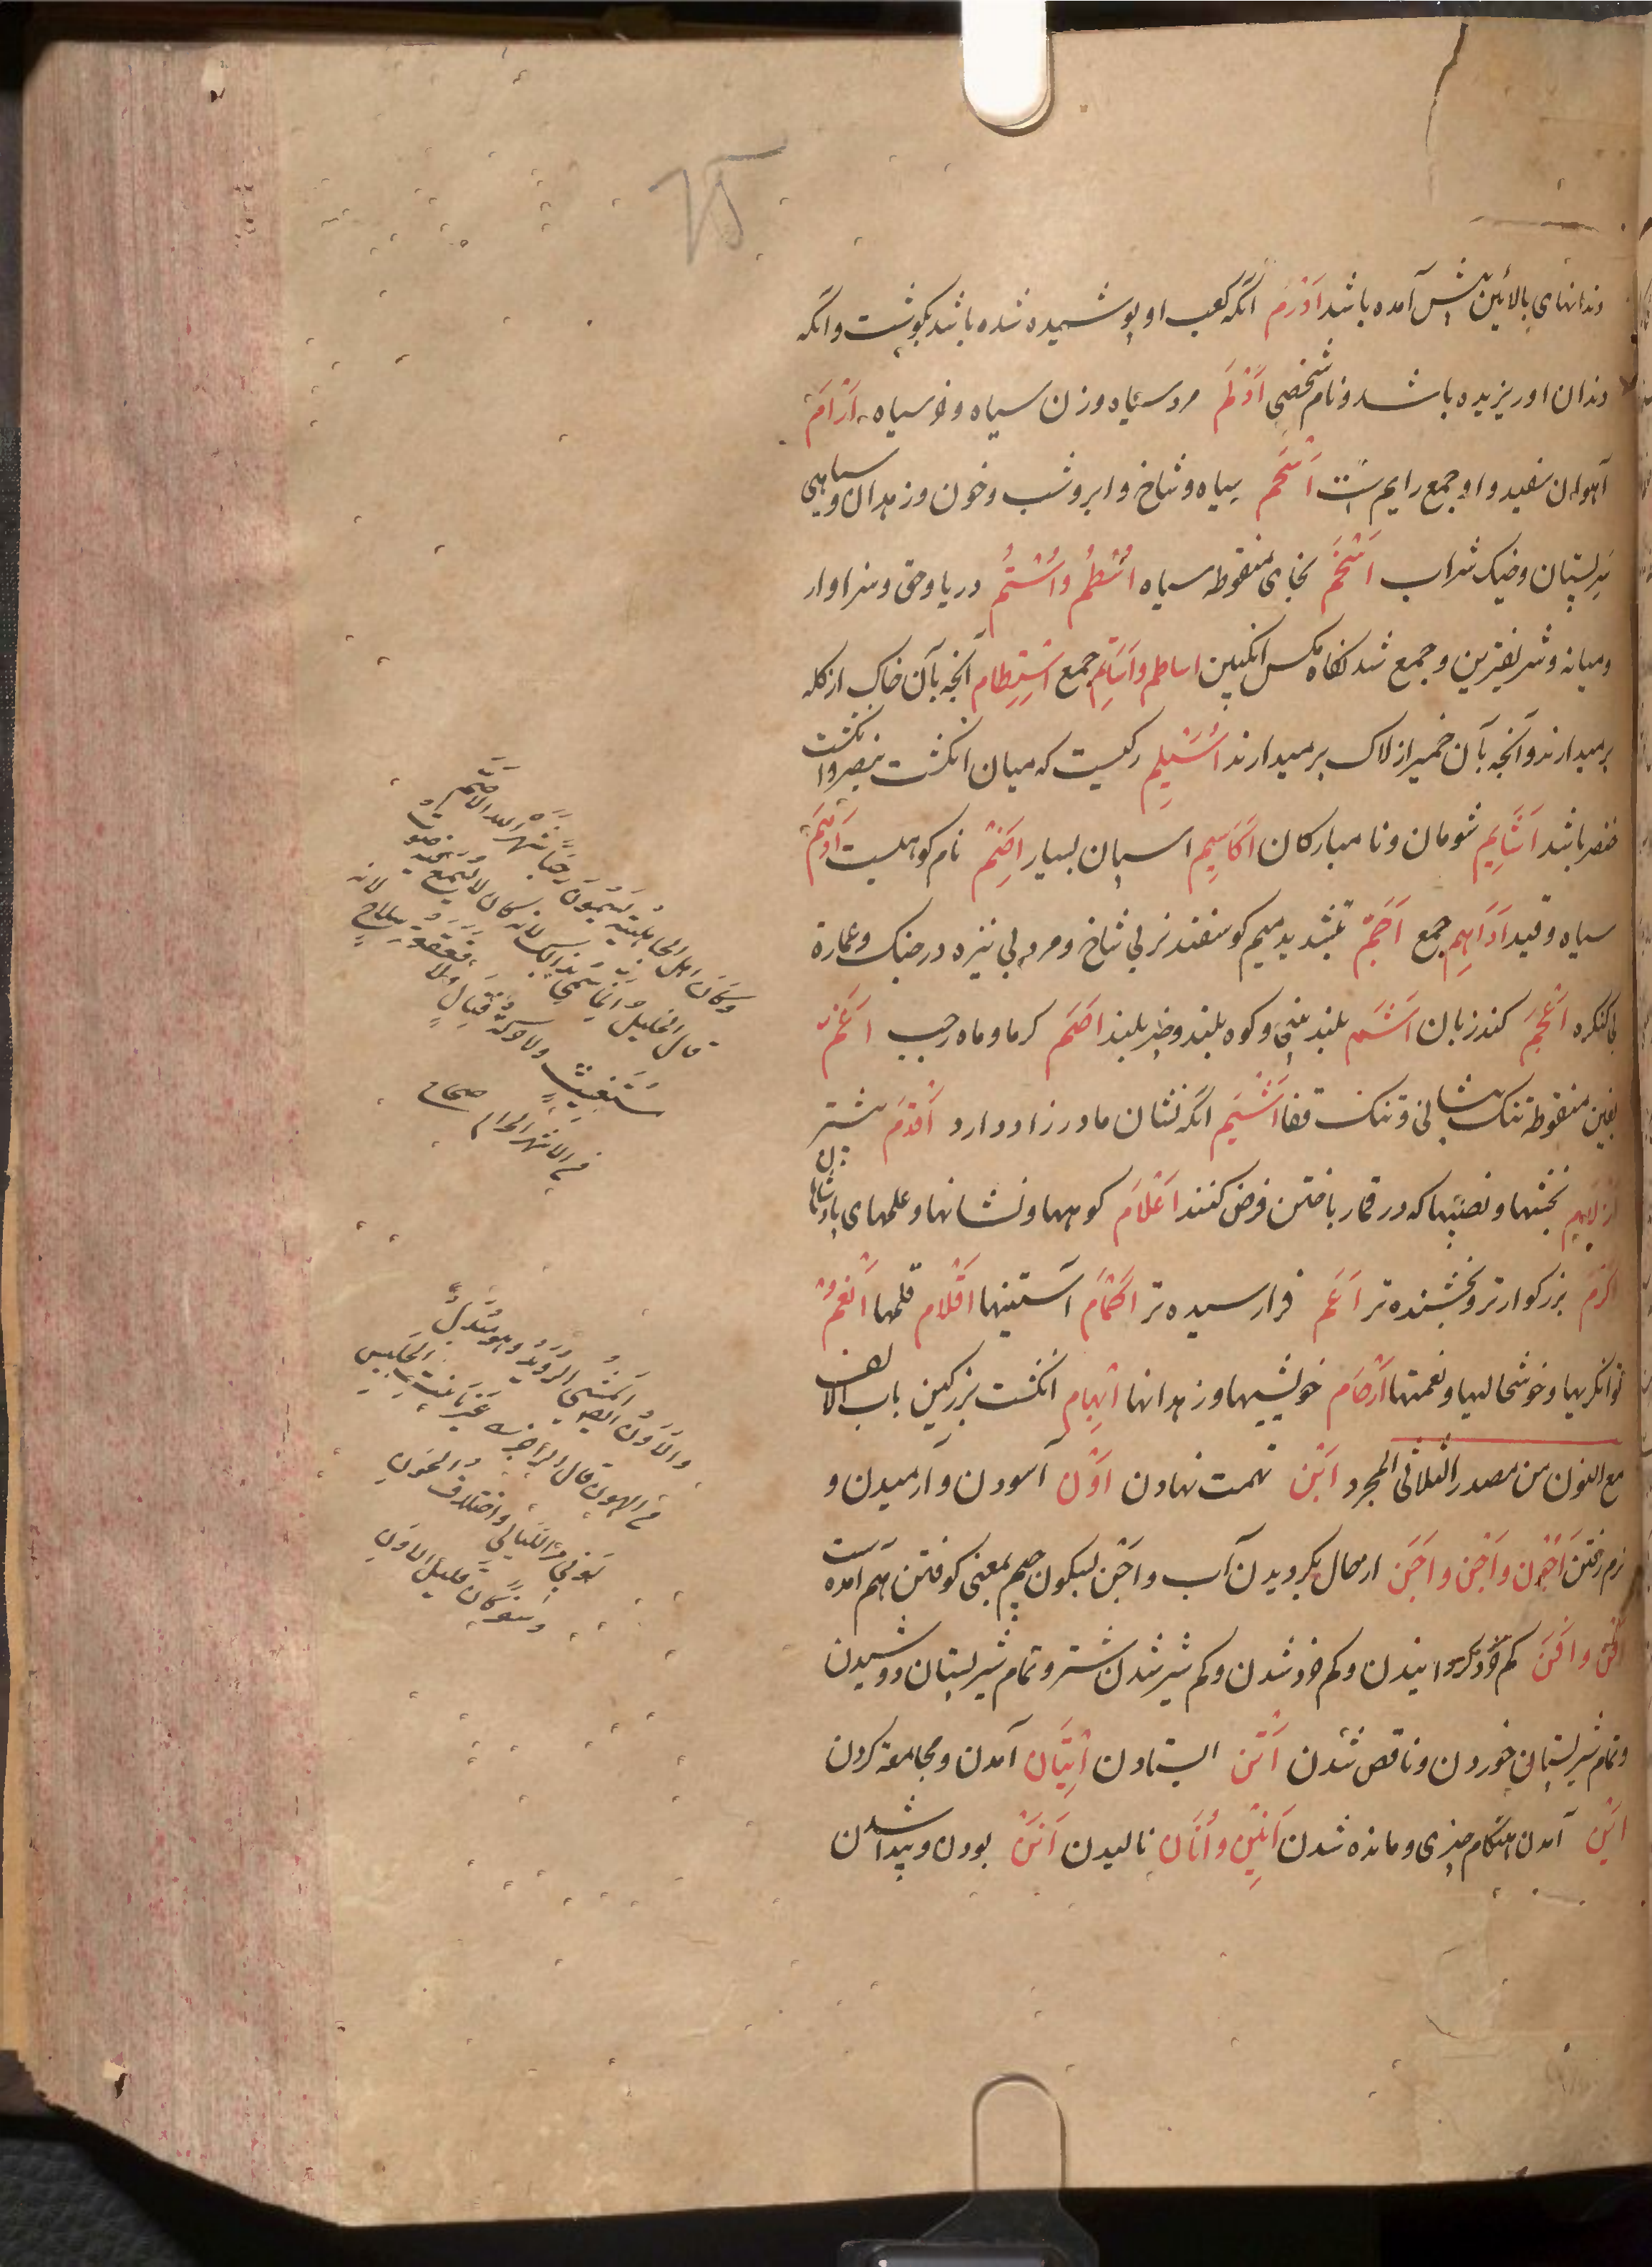 دندانهای بالائین پیش آمده باشد اَدْرَم انکه کعب او پوشیده شده باشد بکوشت و انکه
دندان او ریزیده باشد و نام شخصی اَدْلَم مرد سیاه و زن سیاه و خر سیاه اَرْام
آهوان سفید و او جمع رایم ست اَسْحَم سیاه و شاخ و ابر و شب و خون و زهدان و سیاهی
سر پستان و خیک شراب اَسْخَم بخای منقوطه سیاه اُسْطُم و اُسْتُم دریا و حق و سزاوار
و میانه و شریفترین و جمع شدنکاه مکس انکبین اساطم و اَسَاتِم جمع اِسْتِطام آنچه بآن خاک از کله
برمیدارند و آنچه بآن خمیر از لاک برمیدارند اُسَیْلِم رکیست که میان انکشت بنصر و انکشت
خنصر باشد اَشَایِم شومان و نامبارکان اَکَاسِیم اسپان بسیار اِضَم نام کوهیست اَدْهَم
سیاه و قید اَدَاهِم جمع اَجَمّ بتشدید میم کوسفند نر بی شاخ و مرد بی نیزه در جنک و عمارة
بی کنکره اَعْجَم کند زبان اَشَمّ بلند بینی و کوه بلند و بلند اَصَمّ کر ما و ماه رجب اَغَمّ
بغین منقوطه تنک پیشانی و تنک قفا اَشْیَم انکه نشان مادرزاد دارد اَقْدَم پیشتر
بخشها و نصیبها که در قمار باختن فرض کنند اَعْلَام کوهها و نشانها و علمهای پادشاهان
اَکْرَم بزرکوارتر و بخشنده تر اَعَمّ فرارسیده تر اَکْمَام آستینها اَقْلَام قلمها اَنْعُم
توانکریها و خوشحالیها و نعمتها اَرْحَام خویشیها و زهدانها اِبْهَام انکشت بزرکین باب الالف
مع النون من مصدر الثلاثی المجرد اَبْن تهمت نهادن اَوْن آسودن و آرمیدن و
نرم رفتن اُجُون و اَجْن و اَجَن از حال بکردیدن آب و اَجْن بسکون جیم بمعنی کوفتن هم آمده است
اَفْن و اَفَن کم خرد کردانیدن و کم خرد شدن و کم شیر شدن شتر و تمام شیر پستان دوشیدن
و تمام شیر پستان خوردن و ناقص شدن اَتْن ایستادن اِتْیَان آمدن و مجامعة کردن
اَیْن آمدن هنکام چیزی و مانده شدن اَنِین و اُنَان نالیدن بودن و پیدا شدن
وکان اهل الجاهلیة یُسَمُّونَ رجبا شهر الله الاصم
قال الخلیل وانما سمی بذلک لانه کان لا یسمع فیه صوت
مستغیث ولا حرکة قتال ولا قعقعة سلاح لانه
من الاشهر الحرم صحاح
والاون ایضا المشی الروید وهو مبدل
من الهون قال الراجز غیر یا بنت الجلیس
لونی مر اللیالی واختلاف الجون
وسفر کان قلیل الاون